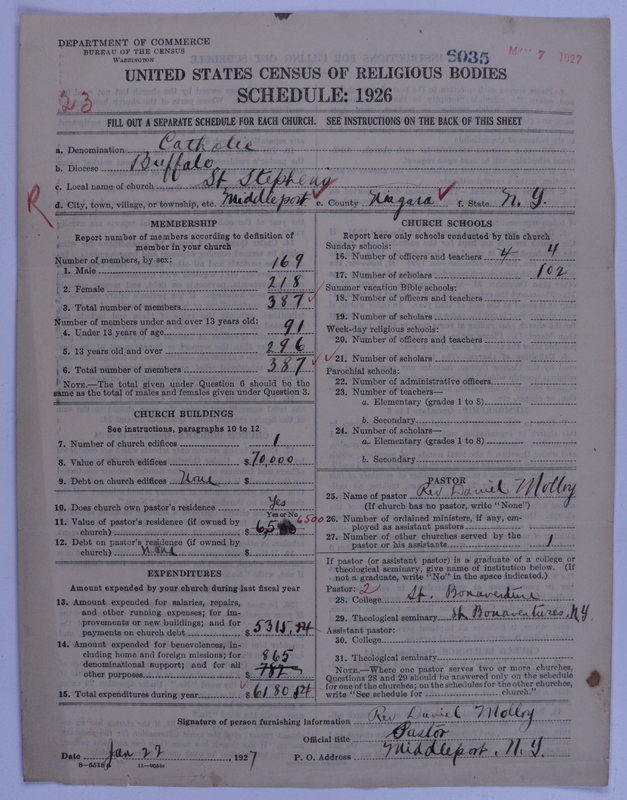 DEPARTMENT OF COMMERCE
BUREAU OF THE CENSUS
WASHINGTON
6035
MAY 7 1927
UNITED STATES CENSUS OF RELIGIOUS BODIES
SCHEDULE: 1926
23
FILL OUT A SEPARATE SCHEDULE FOR EACH CHURCH. SEE INSTRUCTIONS ON THE BACK OF THIS SHEET
a. Denomination Catholic
b. Diocese Buffalo
c. Local name of church St Stephens
R
d. City, town, village, or township, etc. Middleport e. County Niagara f. State N. Y.
MEMBERSHIP
Report number of members according to definition of
member in your church
Number of members, by sex:
1. Male 169
2. Female 218
3. Total number of members 387
Number of members under and over 13 years old:
4. Under 13 years of age 91
5. 13 years old and over 296
6. Total number of members 387
NOTE.—The total given under Question 6 should be the
same as the total of males and females given under Question 3.
CHURCH BUILDINGS
See instructions, paragraphs 10 to 12
7. Number of church edifices 1
8. Value of church edifices $ 70,000
9. Debt on church edifices None $
10. Does church own pastor's residence Yes
Yes or No
11. Value of pastor's residence (if owned by
church) $ 6500
12. Debt on pastor's residence (if owned by
church) None $
EXPENDITURES
Amount expended by your church during last fiscal year
13. Amount expended for salaries, repairs,
and other running expenses; for im-
provements or new buildings; and for
payments on church debt $ 5315.54
14. Amount expended for benevolences, in-
cluding home and foreign missions; for
denominational support; and for all
other purposes $ 865
787
15. Total expenditures during year $ 6180 54
CHURCH SCHOOLS
Report here only schools conducted by this church
Sunday schools:
16. Number of officers and teachers 4 4
17. Number of scholars 102
Summer vacation Bible schools:
18. Number of officers and teachers
19. Number of scholars
Week-day religious schools:
20. Number of officers and teachers
21. Number of scholars
Parochial schools:
22. Number of administrative officers
23. Number of teachers—
a. Elementary (grades 1 to 8)
b. Secondary
24. Number of scholars—
a. Elementary (grades 1 to 8)
b. Secondary
PASTOR
25. Name of pastor Rev Daniel Molloy
(If church has no pastor, write "None")
26. Number of ordained ministers, if any, em-
ployed as assistant pastors
27. Number of other churches served by the
pastor or his assistants 1
If pastor (or assistant pastor) is a graduate of a college or
theological seminary, give name of institution below. (If
not a graduate, write "No" in the space indicated.)
Pastor: 2
28. College St. Bonaventure
29. Theological seminary St Bonaventures, N.Y.
Assistant pastor:
30. College
31. Theological seminary
NOTE.—Where one pastor serves two or more churches,
Questions 28 and 29 should be answered only on the schedule
for one of the churches; on the schedules for the other churches,
write "See schedule for church."
Signature of person furnishing information Rev Daniel Molloy
Official title Pastor
Date Jan 22, 1927 P. O. Address Middleport, N. Y.